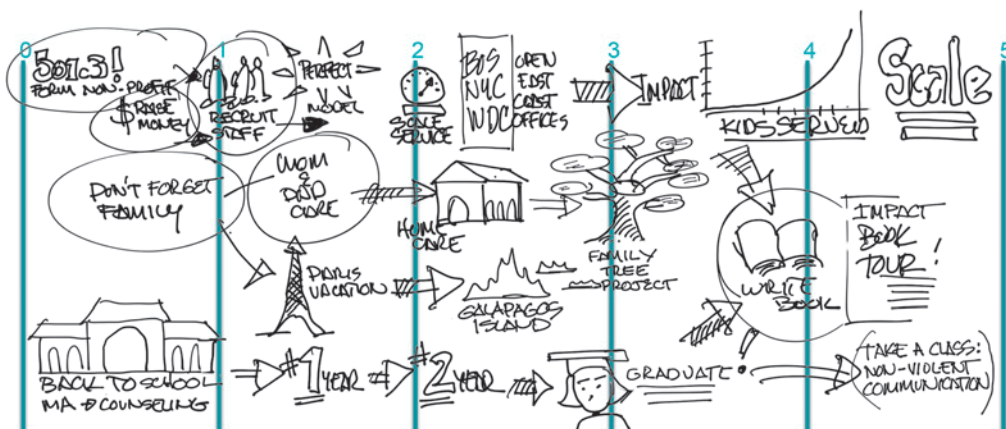 0
1
2
3
4
5
501c3!
FORM NON-PROFIT
$ RAISE
MONEY
RECRUIT
STAFF
PERFECT
MODEL
SCALE
SERVICE
BOS
NYC
WDC
OPEN
EAST
COAST
OFFICES
IMPACT
KIDS SERVED
Scale
DON'T FORGET
FAMILY
MOM
&
DAD
CARE
HOME
CARE
FAMILY
TREE
PROJECT
WRITE
BOOK
IMPACT
BOOK
TOUR!
PARIS
VACATION
GALAPAGOS
ISLAND
BACK TO SCHOOL
MA → COUNSELING
#1 YEAR
#2 YEAR
GRADUATE
TAKE A CLASS:
NON-VIOLENT
COMMUNICATION